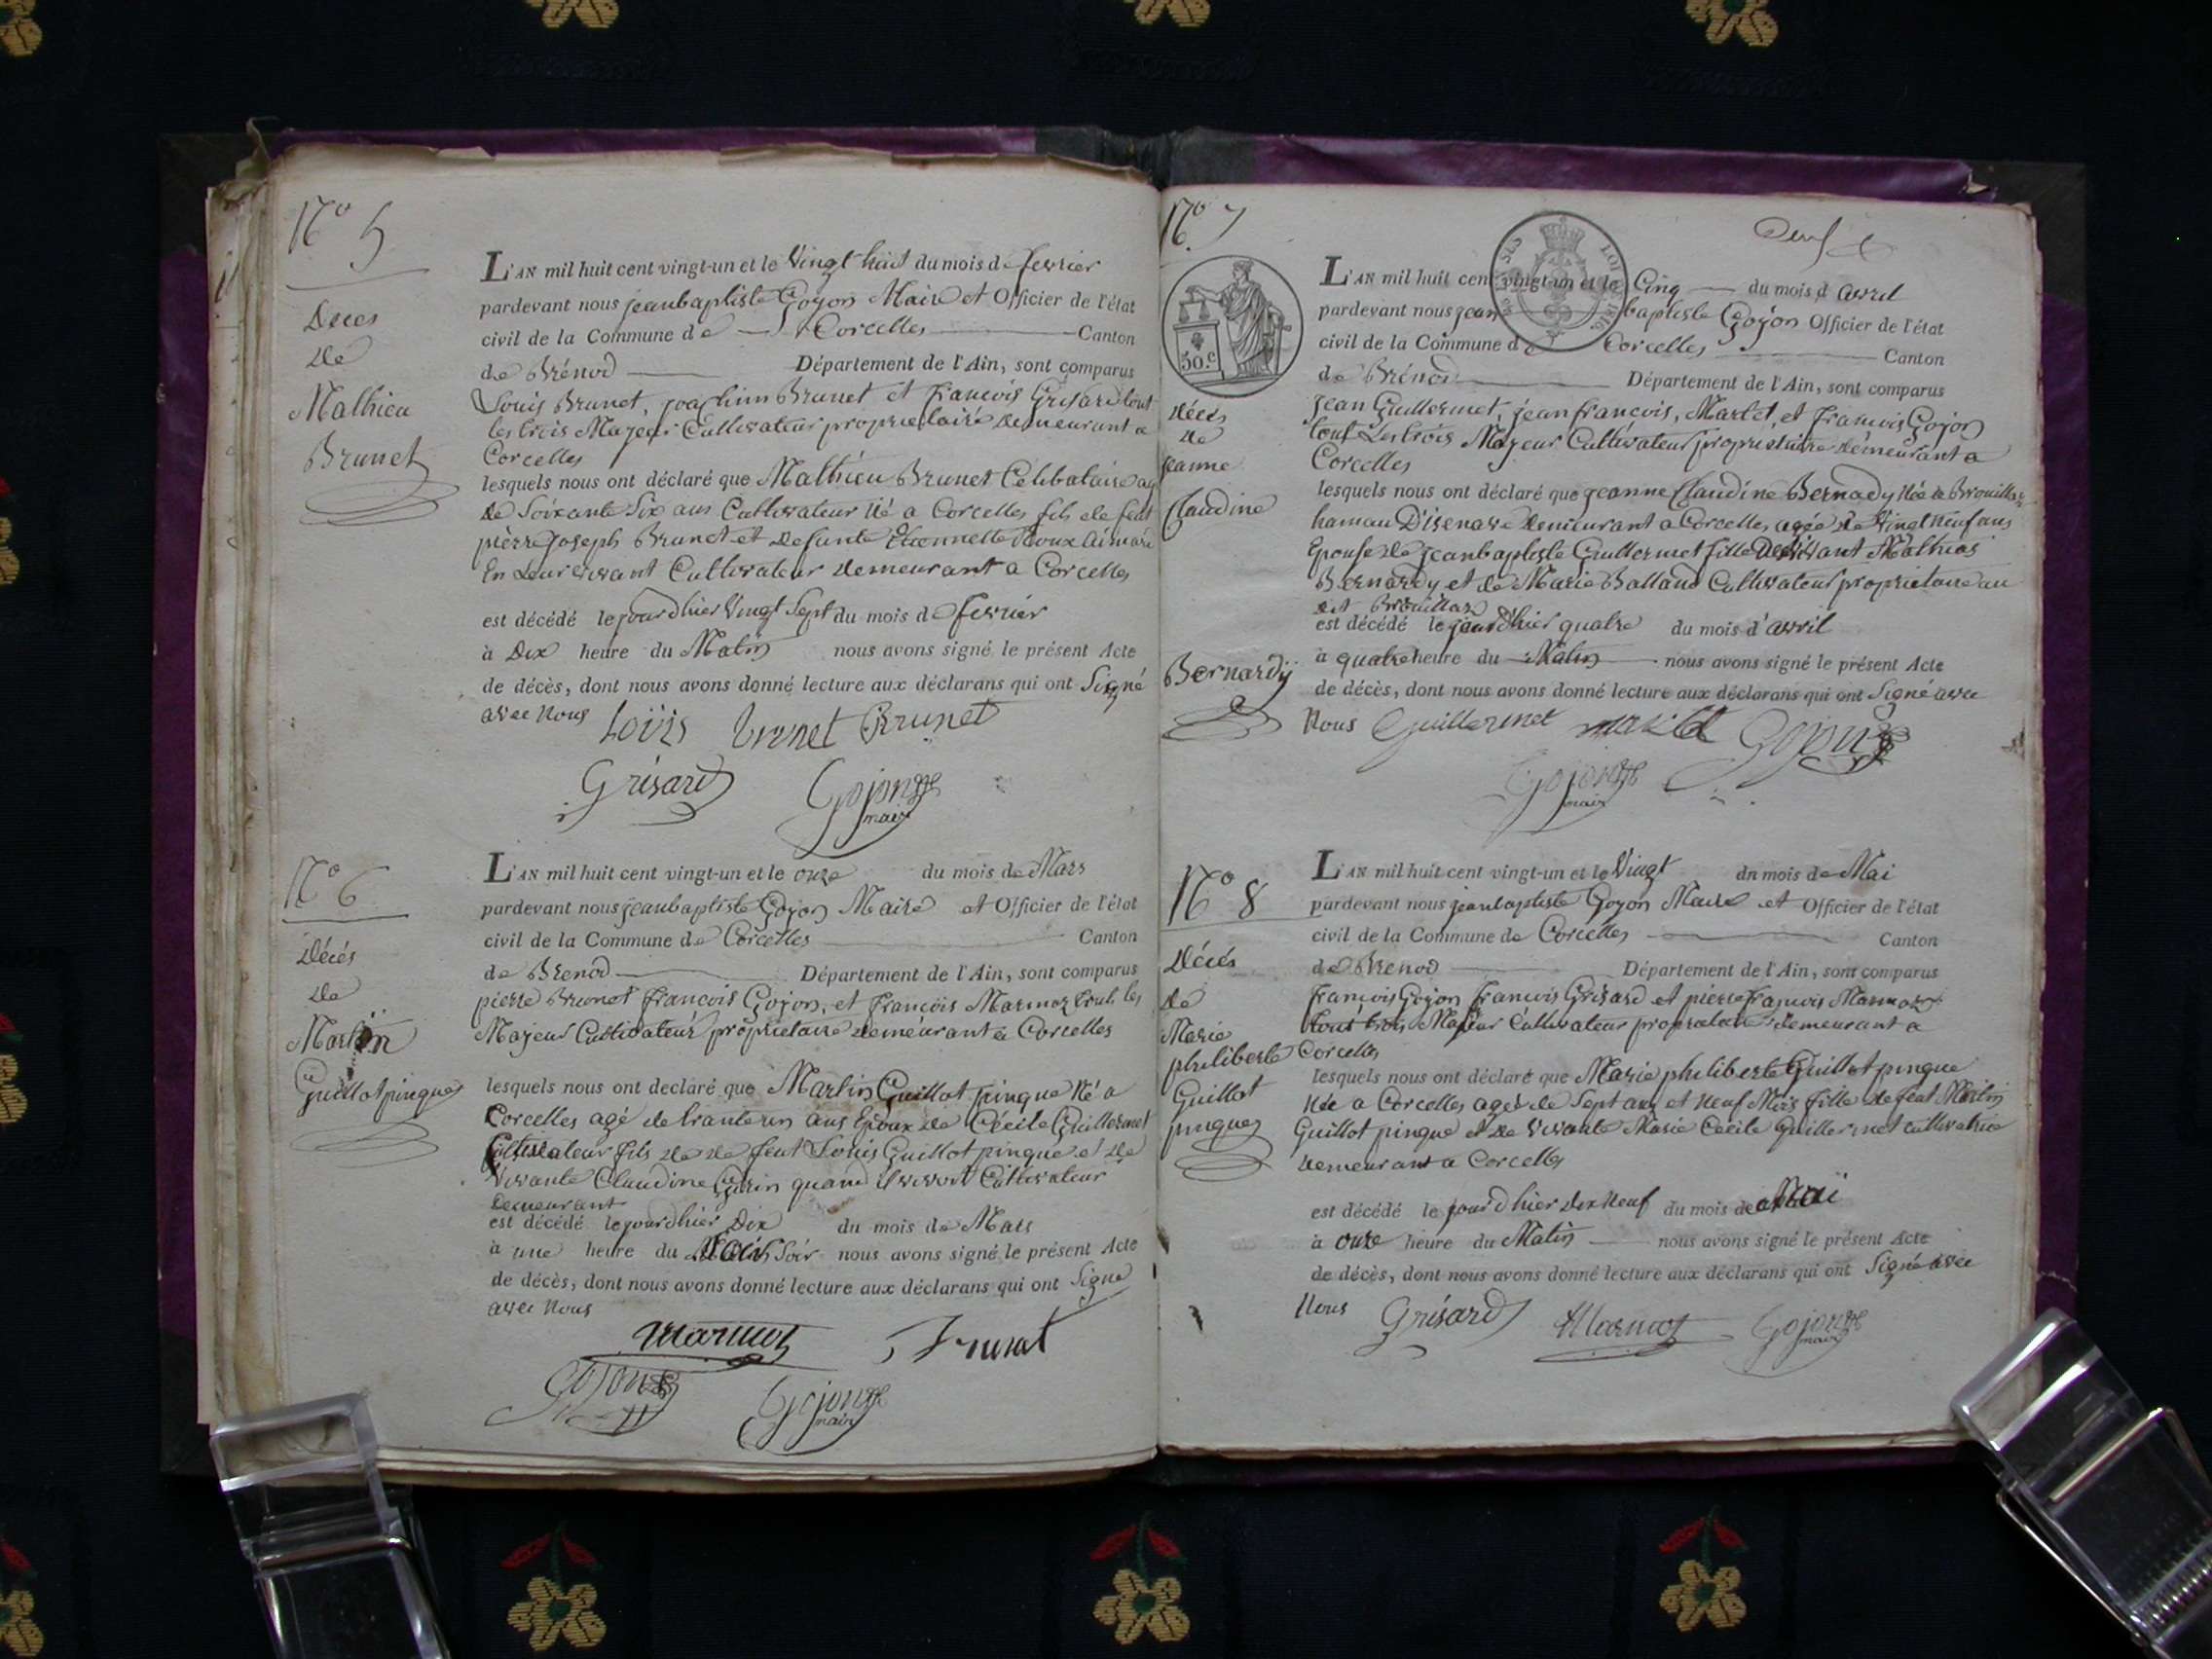 N° 5
Deces
de
Mathieu
Brunet
L'AN mil huit cent vingt-un et le Vingt huit du mois de fevrier
pardevant nous jeanbaptiste Gojon Maire et Officier de l'état
civil de la Commune de Corcelles Canton
de Brénod Département de l'Ain, sont comparus
Louis Brunet, joachim Brunet et francois Grisard tout
les trois Majeur Cultivateur proprietaire demeurant a
Corcelles
lesquels nous ont déclaré que Mathieu Brunet Célibataire agé
de Soixante Six ans Cultivateur Né a Corcelles fils de feut
pierre joseph Brunet et defunte Etiennette Roux
En Leur vivant Cultivateur demeurant a Corcelles
est décédé le jourdhier Vingt Sept du mois de fevrier
à Dix heure du Matin nous avons signé le présent Acte
de décès, dont nous avons donné lecture aux déclarans qui ont Signé
avec Nous Loüis brunet Brunet
Grisard Gojon
maire
N° 6
Décés
de
Martin
Guillot pingue
L'AN mil huit cent vingt-un et le onze du mois de Mars
pardevant nous jeanbaptiste Gojon Maire et Officier de l'état
civil de la Commune de Corcelles Canton
de Brenod Département de l'Ain, sont comparus
pierre Brunet francois Gojon, et francois Marmoz tout les
Majeur Cultivateur proprietaire demeurant a Corcelles
lesquels nous ont declaré que Martin Guillot pingue Né a
Corcelles agé de trante un ans Epoux de Cécile Guillermet
Cultivateur fils de de feut Louis Guillot pingue et de
Vivante Claudine Gurin quand il vivoit Cultivateur
Demeurant
est décédé le jourdhier Dix du mois de Mars
à une heure du Soir nous avons signé le présent Acte
de décès, dont nous avons donné lecture aux déclarans qui ont Signé
avec Nous
Marmoz Brunet
Gojon Gojon
maire
N° 7
50.c
Décés
de
jeanne
Claudine
Bernardy
L'AN mil huit cent vingt-un et le Cinq du mois d'avril
pardevant nous jean baptiste Gojon Officier de l'état
civil de la Commune de Corcelles Canton
de Brénod Département de l'Ain, sont comparus
jean Guillermet, jean francois, Martet, et francois Gojon
tout Les trois Majeur Cultivateur proprietaire demeurant a
Corcelles
lesquels nous ont déclaré que jeanne Claudine Bernady Née a Brouillaz
hamau D'isenave demeurant a Corcelles agée de Vingt Neuf ans
Epouse de jeanbaptiste Guillermet fille De Vivant Mathias
Bernardy et de Marie Balland Cultivateur proprietaire au
dit Brouillaz
est décédé le jourdhier quatre du mois d'avril
à quatre heure du Matin nous avons signé le présent Acte
de décès, dont nous avons donné lecture aux déclarans qui ont Signé avec
Nous Guillermet Gojon
Gojon
maire
N° 8
Décés
de
Marie
philiberte
Guillot
pingue
L'AN mil huit cent vingt-un et le Vingt du mois de Mai
pardevant nous jeanbaptiste Gojon Maire et Officier de l'état
civil de la Commune de Corcelles Canton
de Brenod Département de l'Ain, sont comparus
francois Gojon francois Grisard et pierre francois Marmoz
tous trois Majeur Cultivateur proprietaire demeurant a
Corcelles
lesquels nous ont déclaré que Marie philiberte Guillot pingue
Née a Corcelles agée de Sept ans et Neuf Mois fille de feut Martin
Guillot pingue et de Vivante Marie Cécile Guillermet cultivatrice
demeurant a Corcelles
est décédé le jourdhier dix Neuf du mois de Maï
à onze heure du Matin nous avons signé le présent Acte
de décès, dont nous avons donné lecture aux déclarans qui ont Signé avec
Nous Grisard Marmoz Gojon
maire